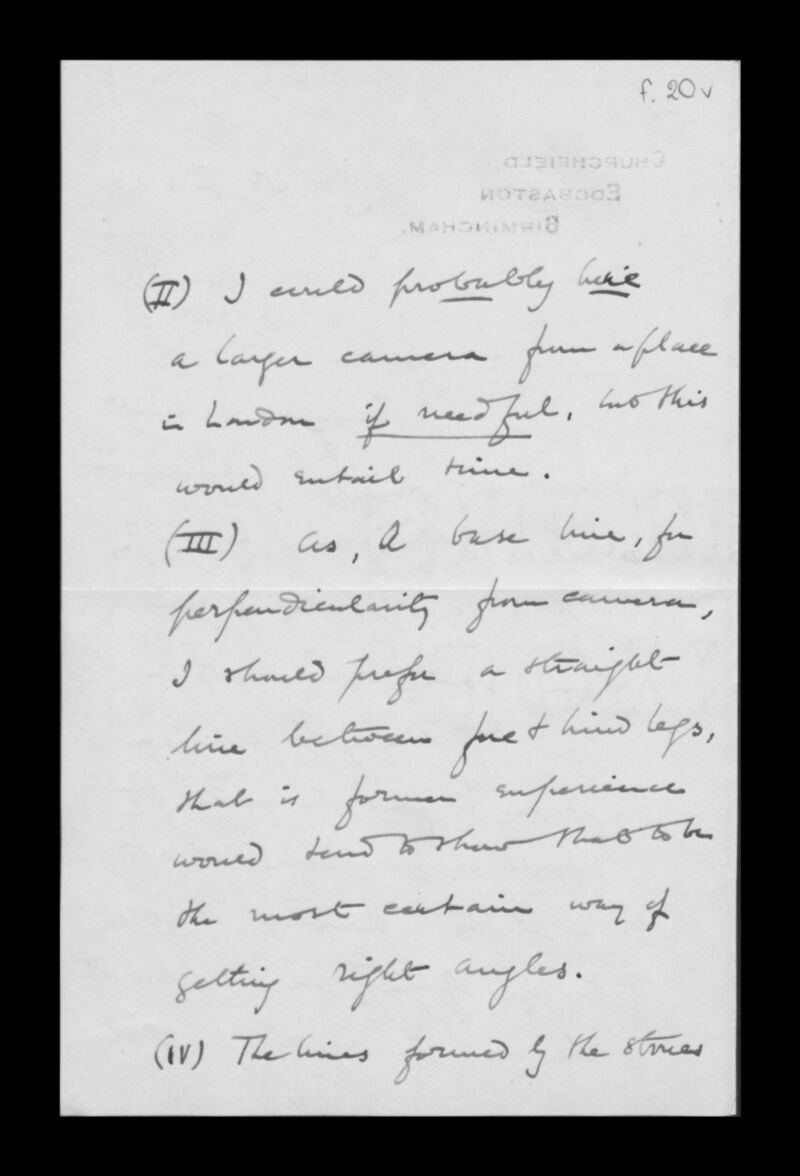 f. 20v
CHURCHFIELD,
EDGBASTON
BIRMINGHAM.
(II) I could probably hire
a larger camera from a place
in London if needful, but this
would entail time.
(III) As, A base line, for
perpendicularity from camera,
I should prefer a straight
line between fore & hind legs,
that is former experience
would tend to show that to be
the most certain way of
getting right angles.
(IV) The lines formed by the stones